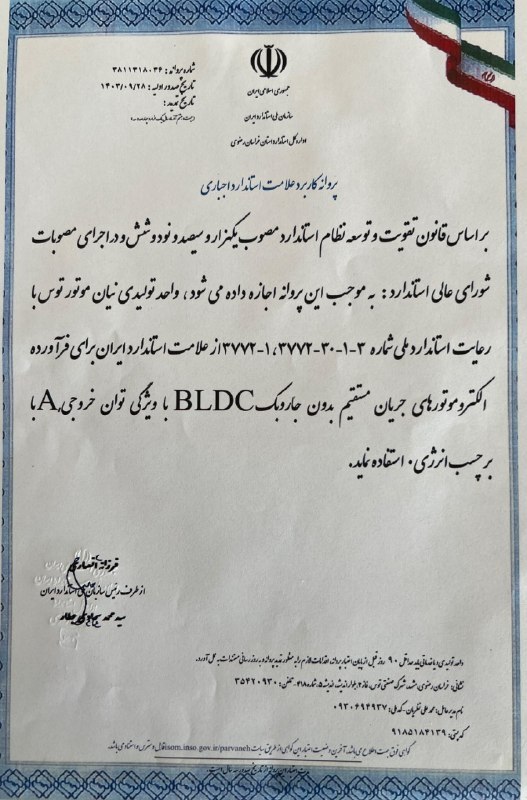 جمهوری اسلامی ایران
سازمان ملی استاندارد ایران
اداره کل استاندارد استان خراسان رضوی
شماره پروانه: ۳۸۱۱۳۱۸۰۳۶
تاریخ صدور اولیه: ۱۴۰۳/۰۹/۲۸
تاریخ تمدید:
پروانه کاربرد علامت استاندارد اجباری
بر اساس قانون تقویت و توسعه نظام استاندارد مصوب یکهزار و سیصد و نود و شش و در اجرای مصوبات
شورای عالی استاندارد: به موجب این پروانه اجازه داده می شود، واحد تولیدی نیان موتور توس با
رعایت استاندارد ملی شماره ۳-۱-۳۰-۳۷۷۲، ۱-۳۷۷۲ از علامت استاندارد ایران برای فرآورده
الکتروموتورهای جریان مستقیم بدون جاروبک BLDC با ویژگی توان خروجی A, با
برچسب انرژی ۰ استفاده نماید.
فرزانه انصاری
از طرف رئیس سازمان ملی استاندارد ایران
سید محمد
واحد تولیدی و یا خدماتی باید حداقل ۹۰ روز قبل از پایان اعتبار پروانه اقدامات لازم را به منظور تمدید پروانه و به روز رسانی مستندات به عمل آورد.
نشانی: خراسان رضوی، مشهد، شهرک صنعتی توس، فاز ۲، بلوار اندیشه، اندیشه ۵، شماره ۴۱۸ - تلفن: ۳۵۴۲۰۹۳۰
نام مدیرعامل: محمد علی نظریان - کد ملی: ۰۹۳۰۶۹۴۹۳۷
کد پستی: ۹۱۸۵۱۸۴۱۳۹
گواهی فوق جهت اطلاع می باشد. آخرین وضعیت اعتبار این گواهی از طریق سایت isom.inso.gov.ir/parvaneh قابل دسترس و استناد می باشد.